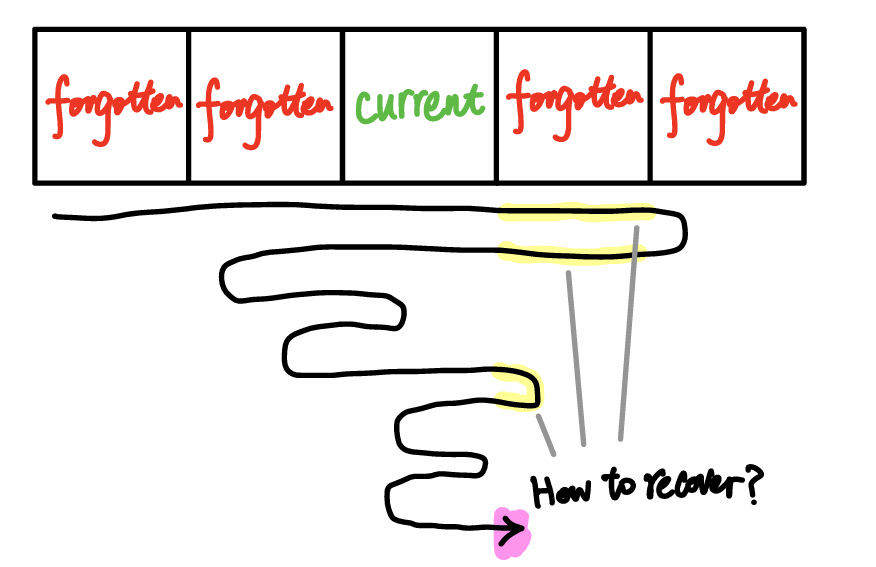 forgotten forgotten current forgotten forgotten
How to recover?